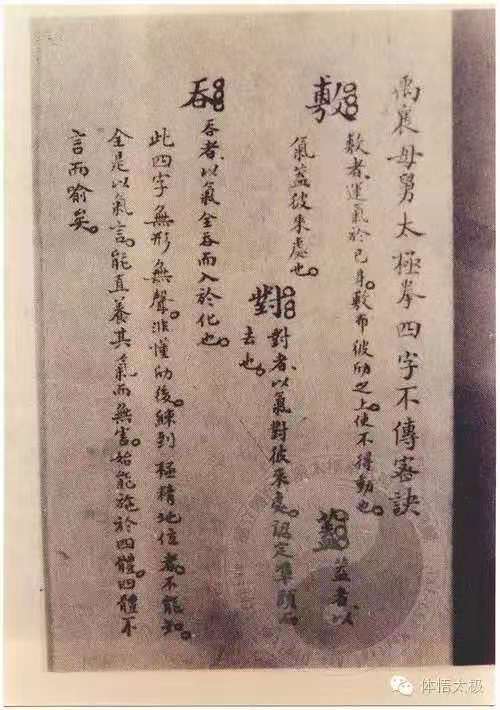 禹襄母舅太極拳四字不傳密訣
敷。敷者、運氣於己身、敷布彼勁之上、使不得動也。蓋。蓋者、以
氣蓋彼來處也。對。對者、以氣對彼來處、認定準頭而
去也。
吞。吞者、以氣全吞而入於化也。
此四字無形無聲。非懂勁後、練到極精地位者、不能知。
全是以氣言。能直養其氣而無害、始能施於四體。四體不
言而喻矣。
体悟太极